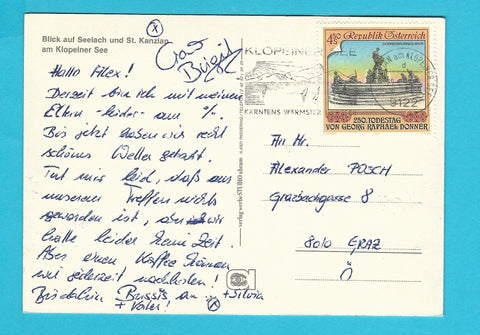 Blick auf Seelach und St. Kanzian
am Klopeiner See
Ciao
Birgit
Hallo Alex!
Derzeit bin ich mit meinen
Eltern - leider - am %.
Bis jetzt haben wir recht
schönes Wetter gehabt.
Tut mir leid, daß aus
unserem Treffen nichts
geworden ist, aber wir
hatte leider keine Zeit.
Aber einen Kaffee können
wir jederzeit nachholen!
Bis dahin Bussis an ... + Silvia
+ Vater!
verlag werbe STUDIO
KLOPEINER SEE
KÄRNTENS WÄRMSTER
AM KLOPEINER
9122
4.50 Republik Österreich
DONNERBRUNNEN WIEN
250. TODESTAG
VON GEORG RAPHAEL DONNER
An Hr.
Alexander POSCH
Grazbachgasse 8
8010 GRAZ
Ö